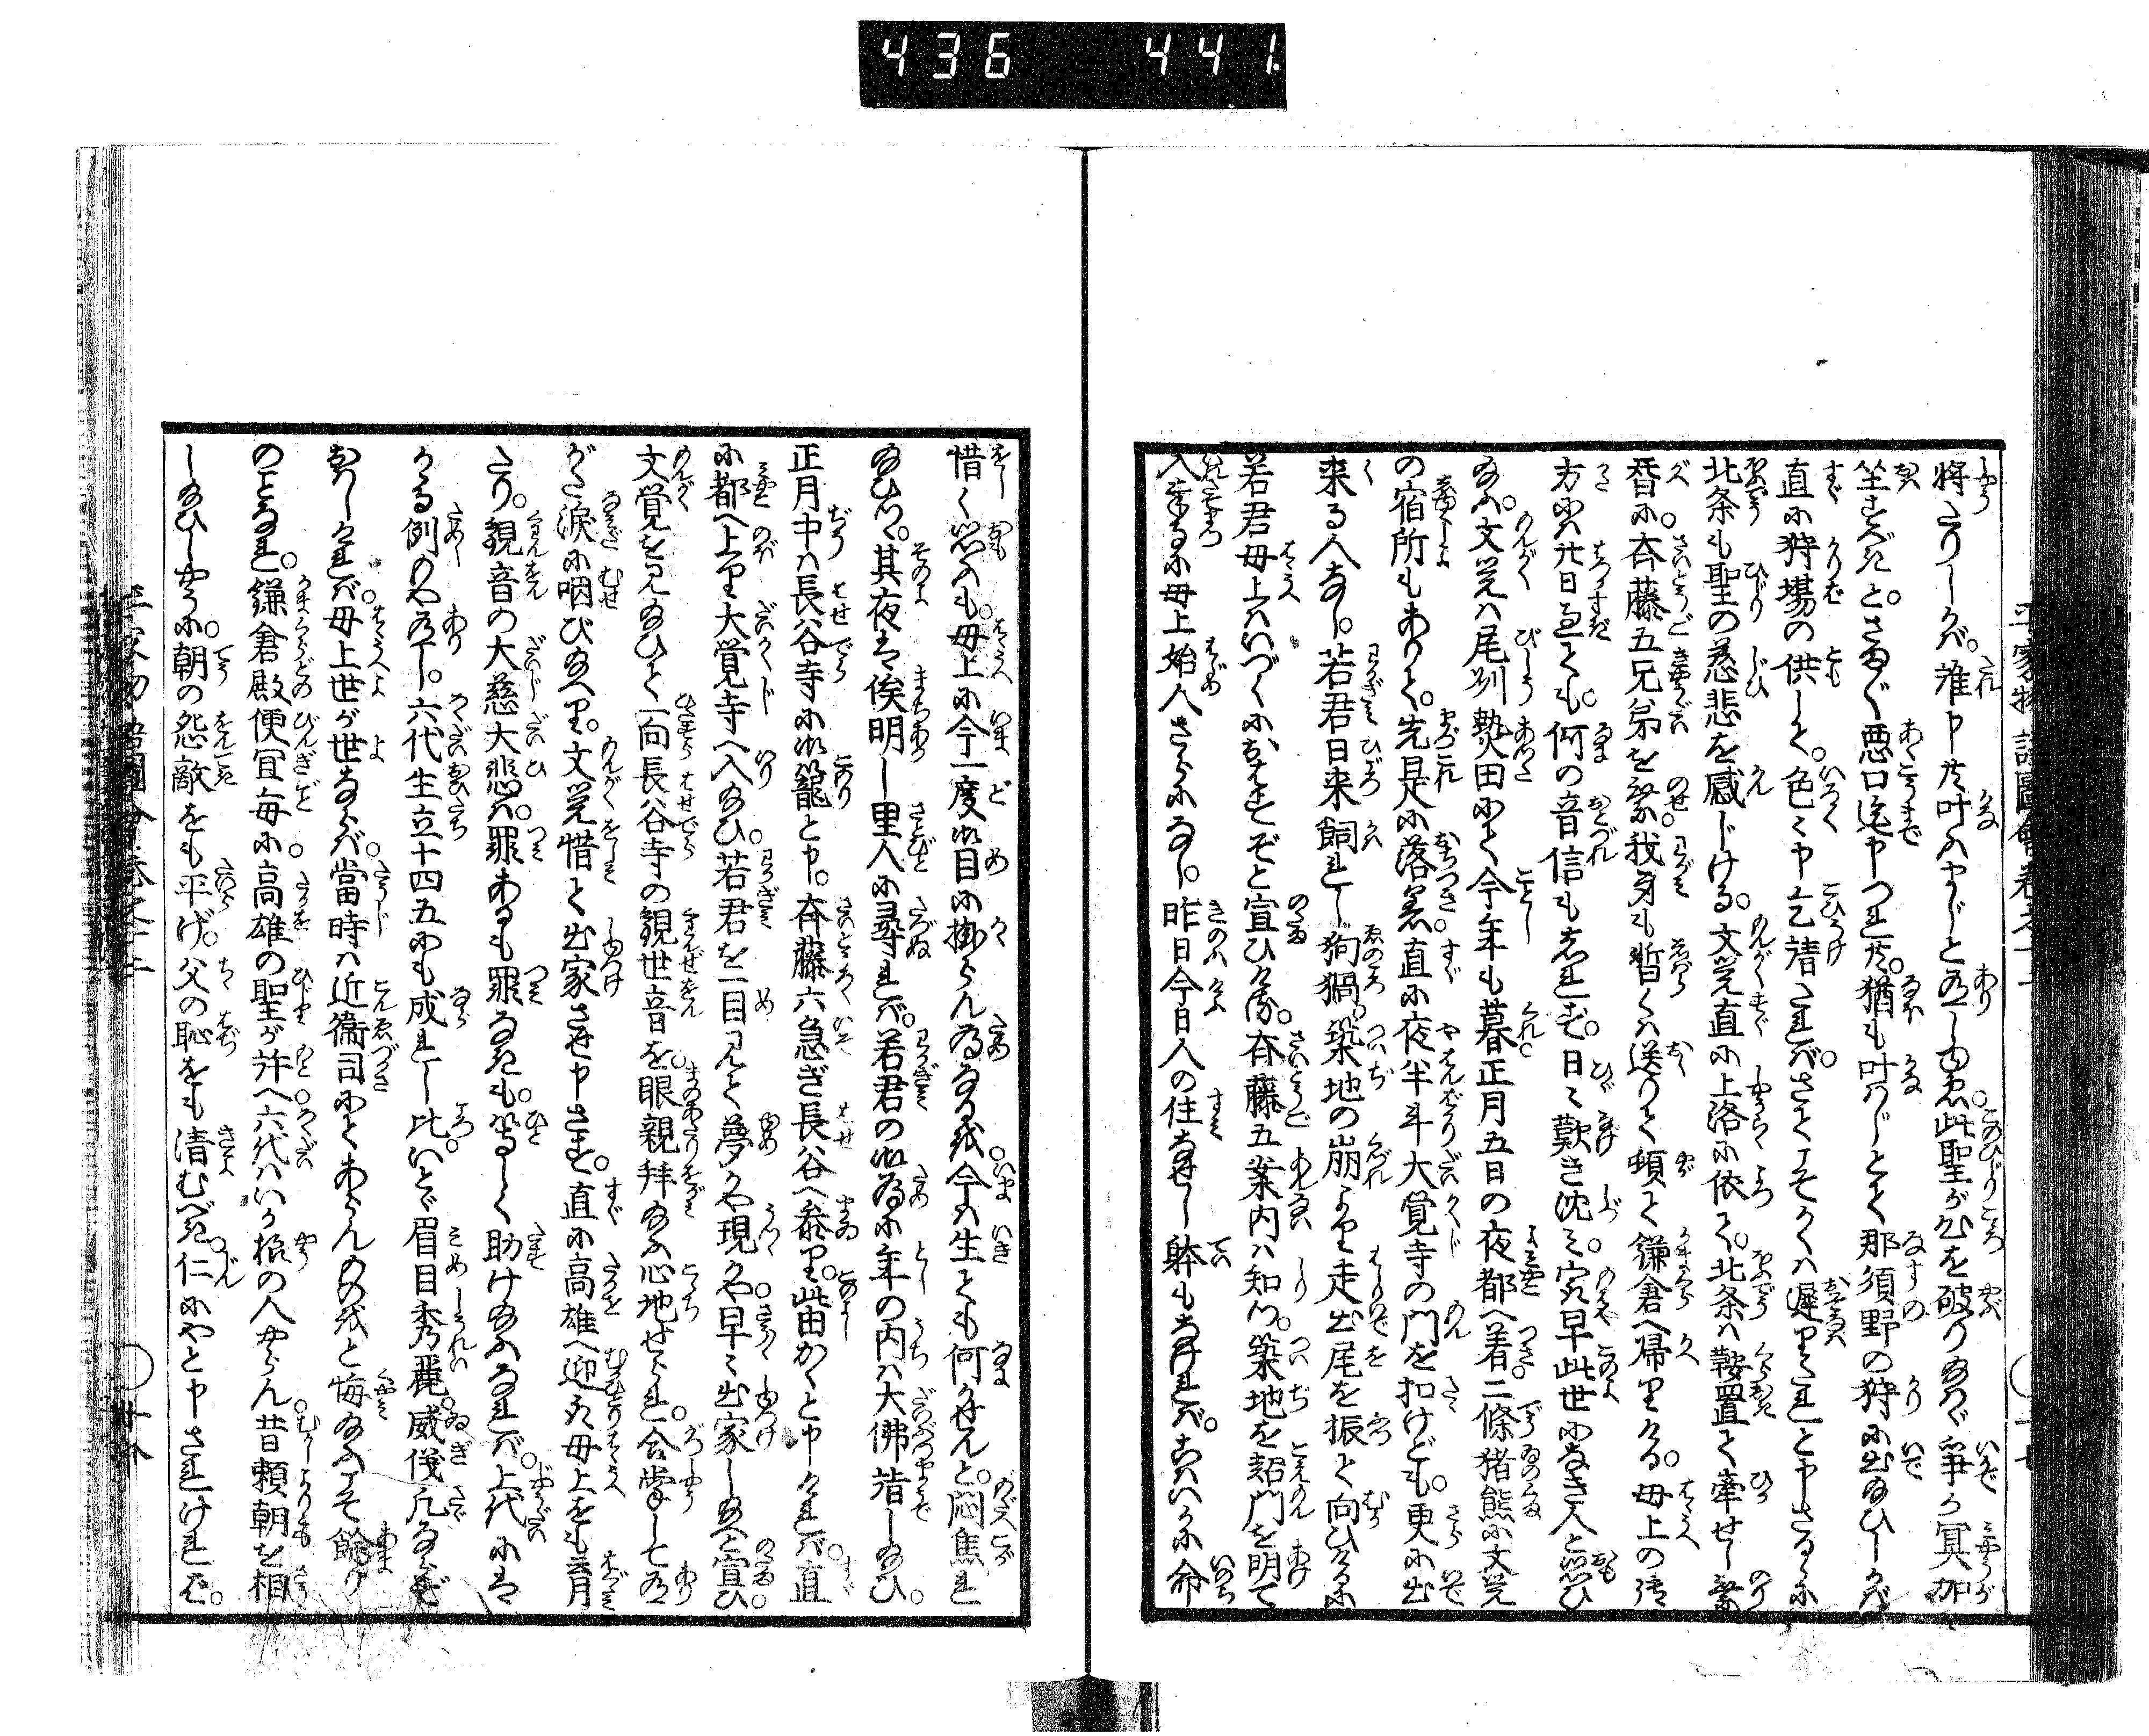 436 441.
平家物語圖會巻之十二
将たりしかバ。誰申共叶ふまじと有しゆゑ。此聖が心を破り給ハゞ争か冥加
坐すべき。とさまざま悪口迄申つれ共。猶も叶ハじとて那須野の狩に出給ひしかバ
直に狩場の供して。色々申乞請たれバ。さてこそかくハ遅りたれと申さるゝに
北条も聖の慈悲を感じける。文覚直に上洛に依て。北条ハ鞍置て牽せし
替に。斉藤五兄弟を乗。我身も暫くハ送りて頓て鎌倉へ帰りける。母上の
方にハ廿日過ても。何の音信もあらず。日々歎き沈ミ。宛早此世になき人と思ひ
給ふ。文覚ハ尾州熱田にて今年も暮正月五日の夜都へ着二條猪熊に文覚
の宿所もありて。先是に落着。直に夜半斗大覚寺の門を扣けども。更に出
来る人なし。若君日来飼れし狗猧。築地の崩より走出尾を振て向ひけるに
若君母上ハいづくにおハすぞと宣ひける。斉藤五案内ハ知つ。築地を超門を明て
入奉るに母上始人さらになし。昨日今日人の住なせし躰もなけれバ。こハいかに命
惜く思ふも。母上に今一度御目に掛らん為なる我。今ハ生ても何かせんと。悶焦れ
給ひつ。其夜を俟明し里人に尋れバ。若君の御為に年の内ハ大佛詣し給ひ。
正月中ハ長谷寺に御籠と申。斉藤六急ぎ長谷へ参り。此由かくと申けれバ。直
に都へ上り大覚寺へ入給ひ。若君を一目見て夢かや現かや早々出家し給へと宣ひ。
文覚を見給ひて一向長谷寺の観世音を。眼親拝給ふ心地せられ。合掌して有
がた涙に咽び給へり。文覚惜て出家させ申さず。直に高雄へ迎取母上をも育
たり。観音の大慈大悲ハ。罪あるも罪なきも。等しく助け給ふなれバ。上代にハ
かゝる例のや有し。六代生立十四五にも成れし比。いとゞ眉目秀麗。威儀凡ならず
おハしけれバ。母上世が世ならバ。當時ハ近衞司にてあらんものをと悔給ふこそ餘り
のことなれ。鎌倉殿便宜毎に。高雄の聖が許へ六代ハいか様の人やらん。昔頼朝を相
し給ひしやうに。朝の怨敵をも平げ。父の恥をも清むべき。仁にやと申されけれバ。